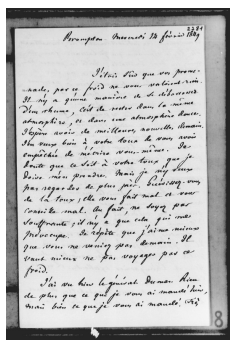 2281
Brompton Mercredi 14 février 1849
J'étais sûr que vos prome-
nade, par ce froid ne vous valaient rien.
Il n'y a qu'une manière de se débarrasser
d'un rhume, c'est de rester dans la même
atmosphère, et dans une atmosphère douce.
J'espère avoir de meilleures nouvelles demain.
J'en veux bien à votre toux de vous avoir
empêchée de m'écrire vous-même. Je
doute que ce soit à votre toux, que je
doive m'en prendre. Mais je n'y veux
pas regarder de plus près. Guérissez-vous
de la toux ; elle vous fait mal et vous
conseille mal. Au fait ne soyez pas
souffrante ; il n'y a que cela qui me
préoccupe. Je répète que j'aime mieux
que vous ne veniez pas demain. Il
vaut mieux ne pas voyager par ce
froid.
J'ai vu hier le général Dumas. Rien
de plus que ce que je vous ai mandé hier,
mais bien ce que je vous ai mandé.
8